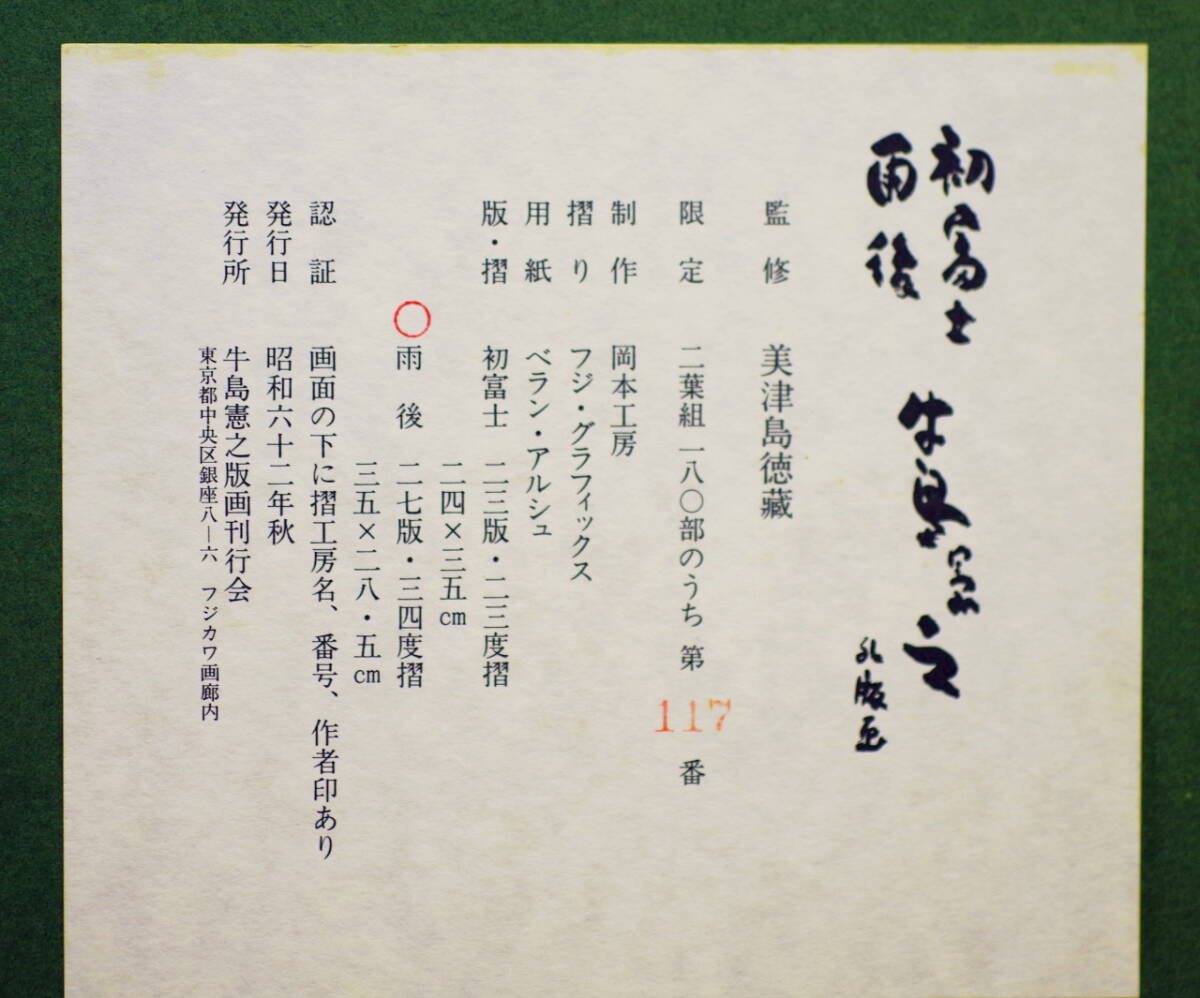 初富士
雨後
牛島憲之
孔版画
監修 美津島徳藏
限定 二葉組一八〇部のうち 第 117 番
制作 岡本工房
摺り フジ・グラフィックス
用紙 ベラン・アルシュ
版・摺 初富士 二三版・二三度摺
二四×三五cm
〇雨後 二七版・三四度摺
三五×二八・五cm
認証 画面の下に摺工房名、番号、作者印あり
発行日 昭和六十二年秋
発行所 牛島憲之版画刊行会
東京都中央区銀座八―六 フジカワ画廊内